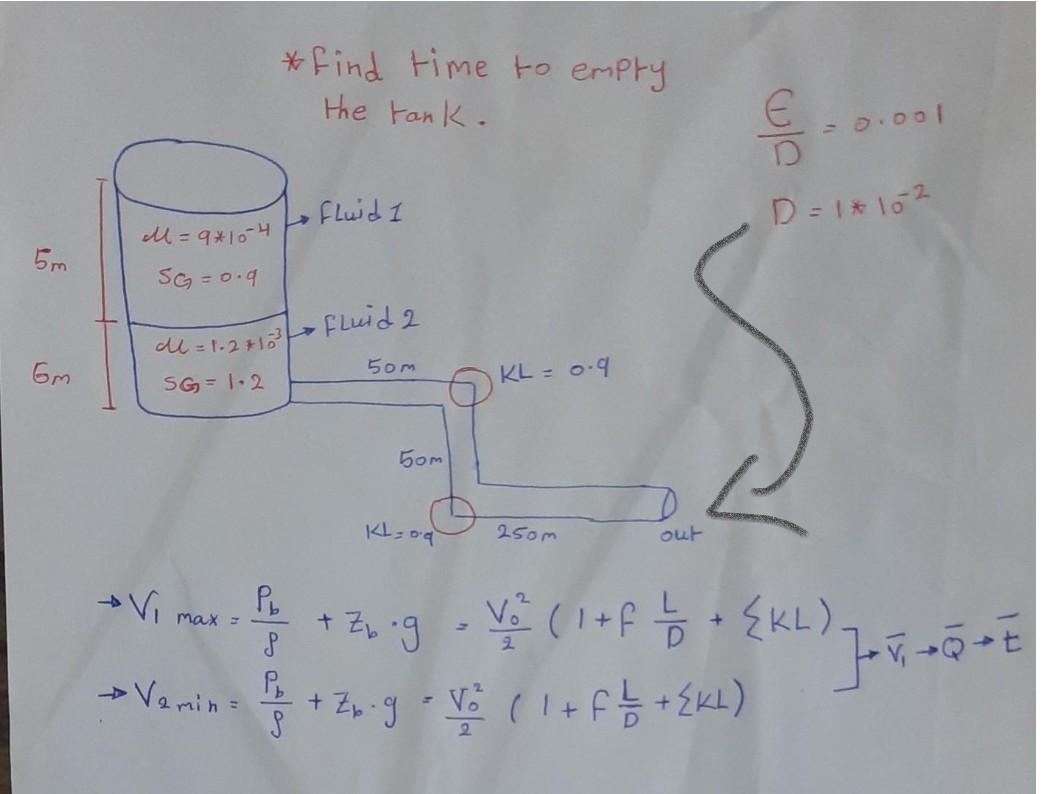 *Find time to empty
the tank.
Є/D = 0.001
D = 1*10⁻²
Fluid 1
μ = 9*10⁻⁴
SG = 0.9
5m
Fluid 2
μ = 1.2*10⁻³
SG = 1.2
6m
50m
KL = 0.9
50m
KL = 0.9
250m
out
→ V₁ max = P_b/ρ + Z_b·g = V₀²/2 (1 + f L/D + ΣKL)
→ V₂ min = P_b/ρ + Z_b·g = V₀²/2 (1 + f L/D + ΣKL)
→ V̄₁ → Q̄ → t̄